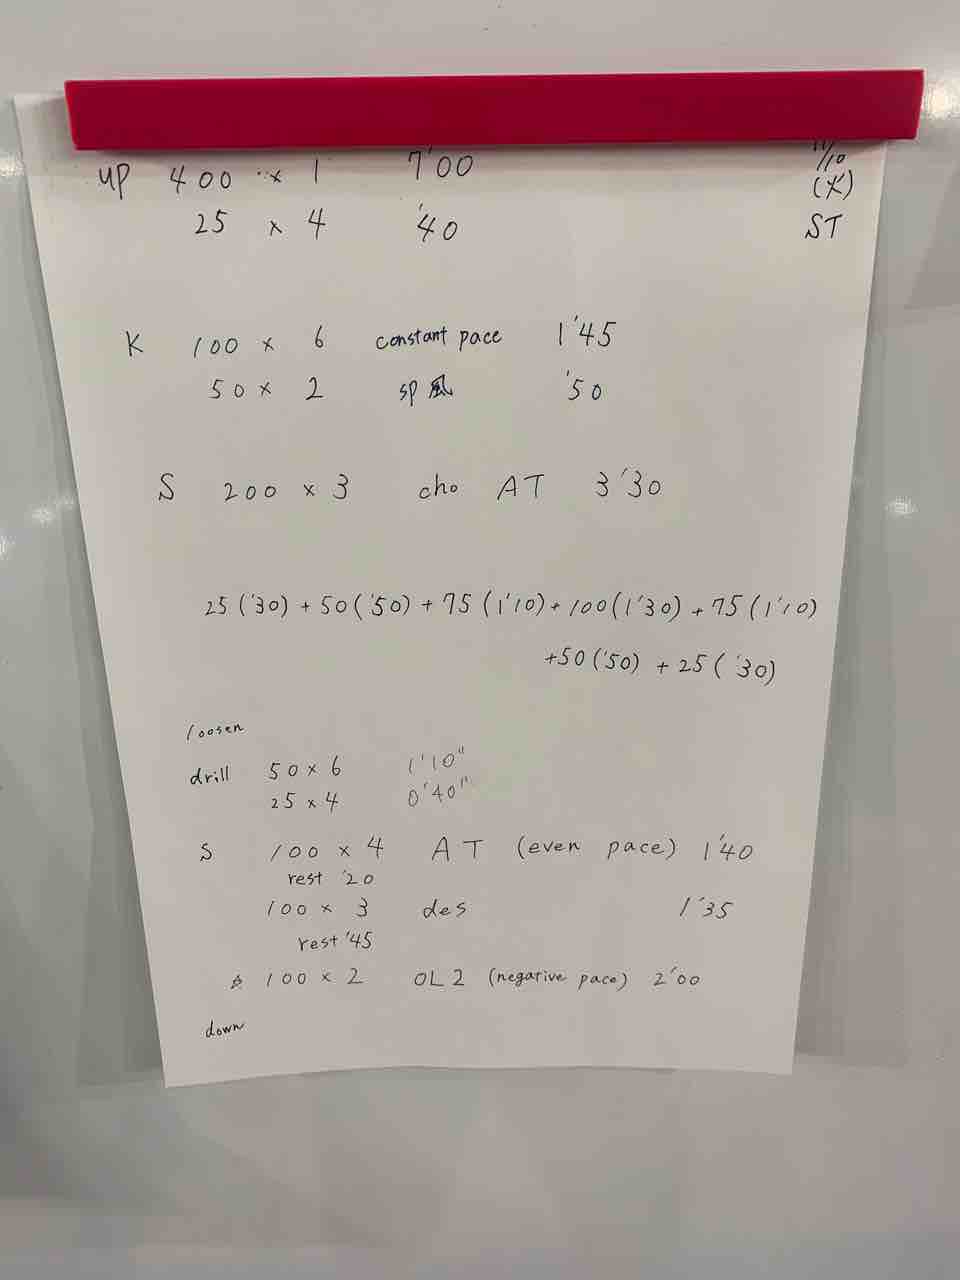 up 400 × 1 7'00
25 × 4 '40
11/10
(火)
ST
K 100 × 6 constant pace 1'45
50 × 2 sp風 '50
S 200 × 3 cho AT 3'30
25('30) + 50('50) + 75(1'10) + 100(1'30) + 75(1'10)
+50('50) + 25('30)
loosen
drill 50 × 6 1'10"
25 × 4 0'40"
S 100 × 4 AT (even pace) 1'40
rest '20
100 × 3 des 1'35
rest '45
☆ 100 × 2 OL2 (negative pace) 2'00
down